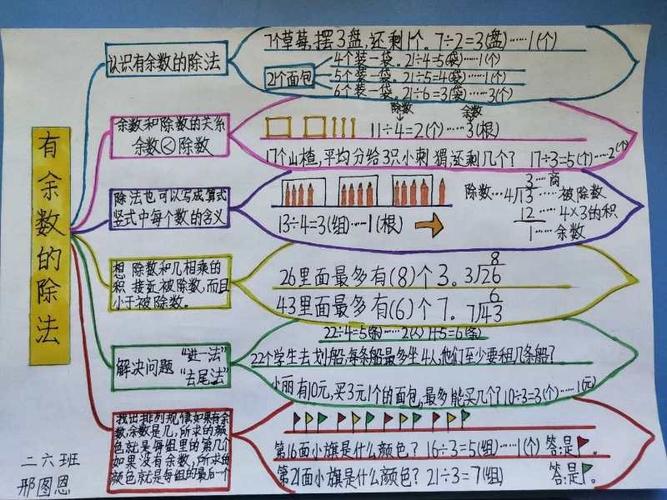 有余数的除法
认识有余数的除法
7个草莓,摆3盘,还剩1个。7÷2=3(盘)……1(个)
21个面包
4个装一袋。21÷4=5(袋)……1(个)
5个装一袋。21÷5=4(袋)……1(个)
6个装一袋。21÷6=3(袋)……3(个)
余数和除数的关系
余数<除数
除数 余数
11÷4=2(个)……3(根)
17个山楂,平均分给3只小刺猬,还剩几个? 17÷3=5(个)……2(个)
除法也可以写成算式
竖式中每个数的含义
13÷4=3(组)……1(根)
3……商
除数……4/13……被除数
12……4×3的积
1……余数
想 除数和几相乘的
积 接近被除数,而且
小于被除数。
26里面最多有(8)个3.
8
3/26
43里面最多有(6)个7.
6
7/43
解决问题
“进一法”
“去尾法”
22÷4=5(条)……2(人) 1+5=6(条)
22个学生去划船,每条船最多坐4人,他们至少要租几条船?
小丽有10元,买3元1个的面包,最多能买几个? 10÷3=3(个)……1(元)
找出排列规律如果有余
数,余数是几,所求的颜
色就是每组里的第几个
如果没有余数,所求的
颜色就是每组的最后一个
第16面小旗是什么颜色? 16÷3=5(组)……1(个) 答:是
第21面小旗是什么颜色? 21÷3=7(组) 答:是
二六班
邢图恩